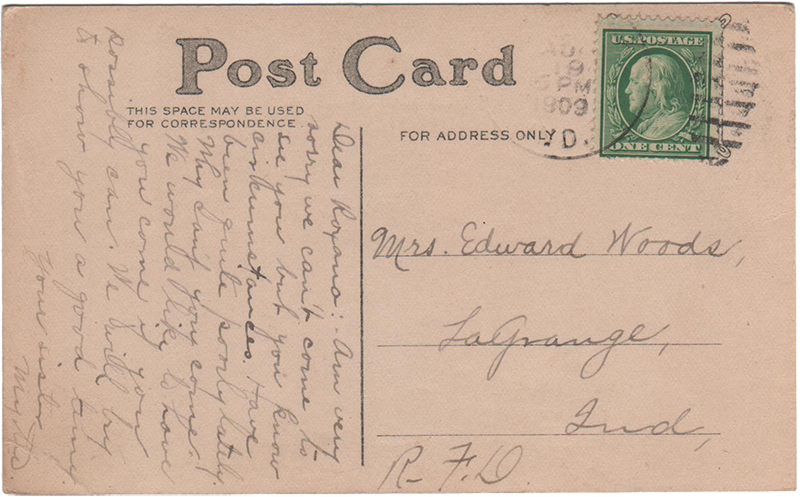 Post Card
THIS SPACE MAY BE USED
FOR CORRESPONDENCE.
FOR ADDRESS ONLY
U.S. POSTAGE
ONE CENT
AU
19
PM
1909
D.
Dear Roxana:- Am very
sorry we can't come to
see you but you know
cirkumstances. Have
been quite poorly lately.
Why don't you come.
We would like to have
you come if you
possibly can. We will try
to show you a good time.
Your sister
Mrs. Edward Woods,
LaGrange,
Ind,
R.F.D.